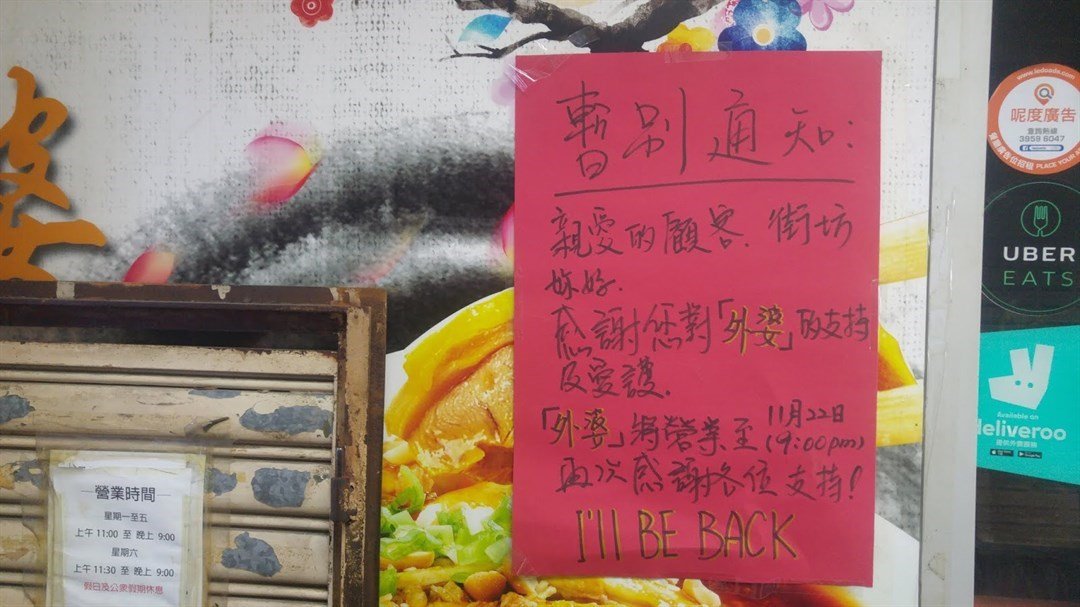 婆
暫別通知:
親愛的顧客、街坊
妳好.
感謝您對「外婆」的支持
及愛護.
「外婆」將營業至 11月22日
(9:00pm)
再次感謝各位支持!
I'll BE BACK
營業時間
星期一至五
上午 11:00 至 晚上 9:00
星期六
上午 11:30 至 晚上 9:00
假日及公眾假期休息
www.iedoads.com
呢度廣告
查詢熱線
3959 6047
PLACE YOUR
UBER
EATS
Available on
deliveroo
提供外賣服務